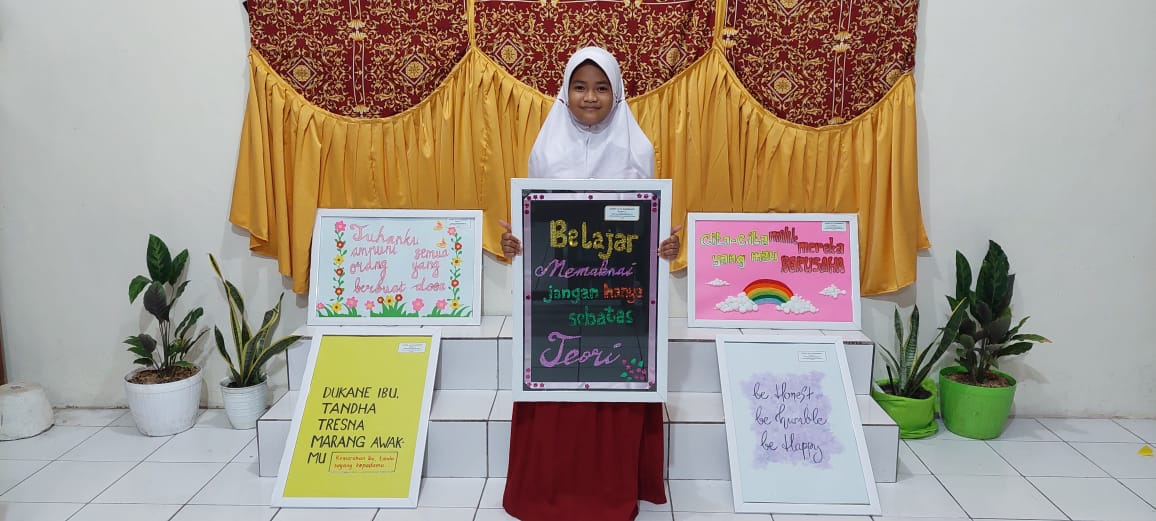 Tuhanku
ampuni semua
orang yang
berbuat dosa
Belajar
Memaknai
jangan hanya
sebatas
Teori
Cita-Cita milik mereka
yang mau BERUSAHA
DUKANE IBU,
TANDHA
TRESNA
MARANG AWAK-
MU
Kemarahan Ibu, tanda
sayang kepadamu
be Honest
be humble
be Happy